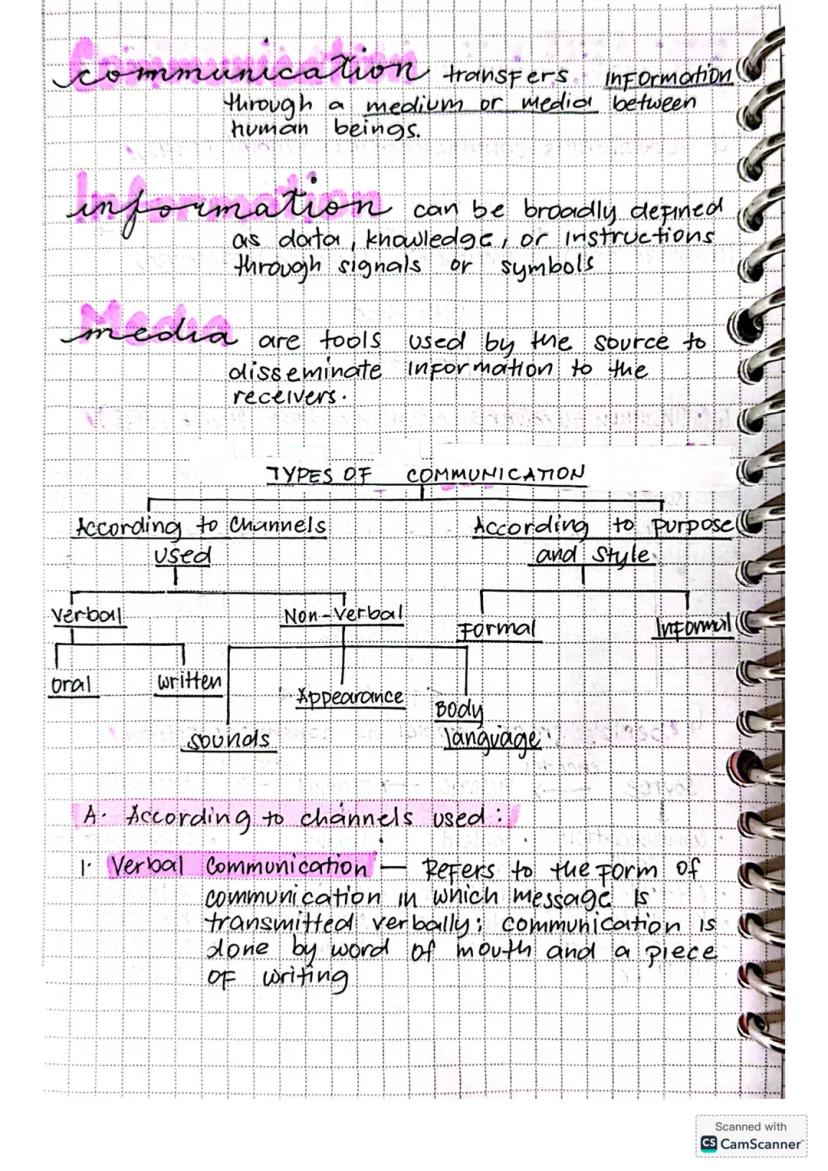 Communication transfers information
through a medium or media between
human beings.
Information can be broadly defined
as data, knowledge, or instructions
through signals or symbols
Media are tools used by the source to
disseminate information to the
receivers.
TYPES OF COMMUNICATION
According to Channels
used
According to purpose
and Style
Verbal
Non-Verbal
Formal
Informal
Oral
written
Appearance
Body
language
sounds
A. According to channels used:
1. Verbal Communication — Refers to the form of
communication in which message is
transmitted verbally; communication is
done by word of mouth and a piece
of writing
Scanned with
CS CamScanner